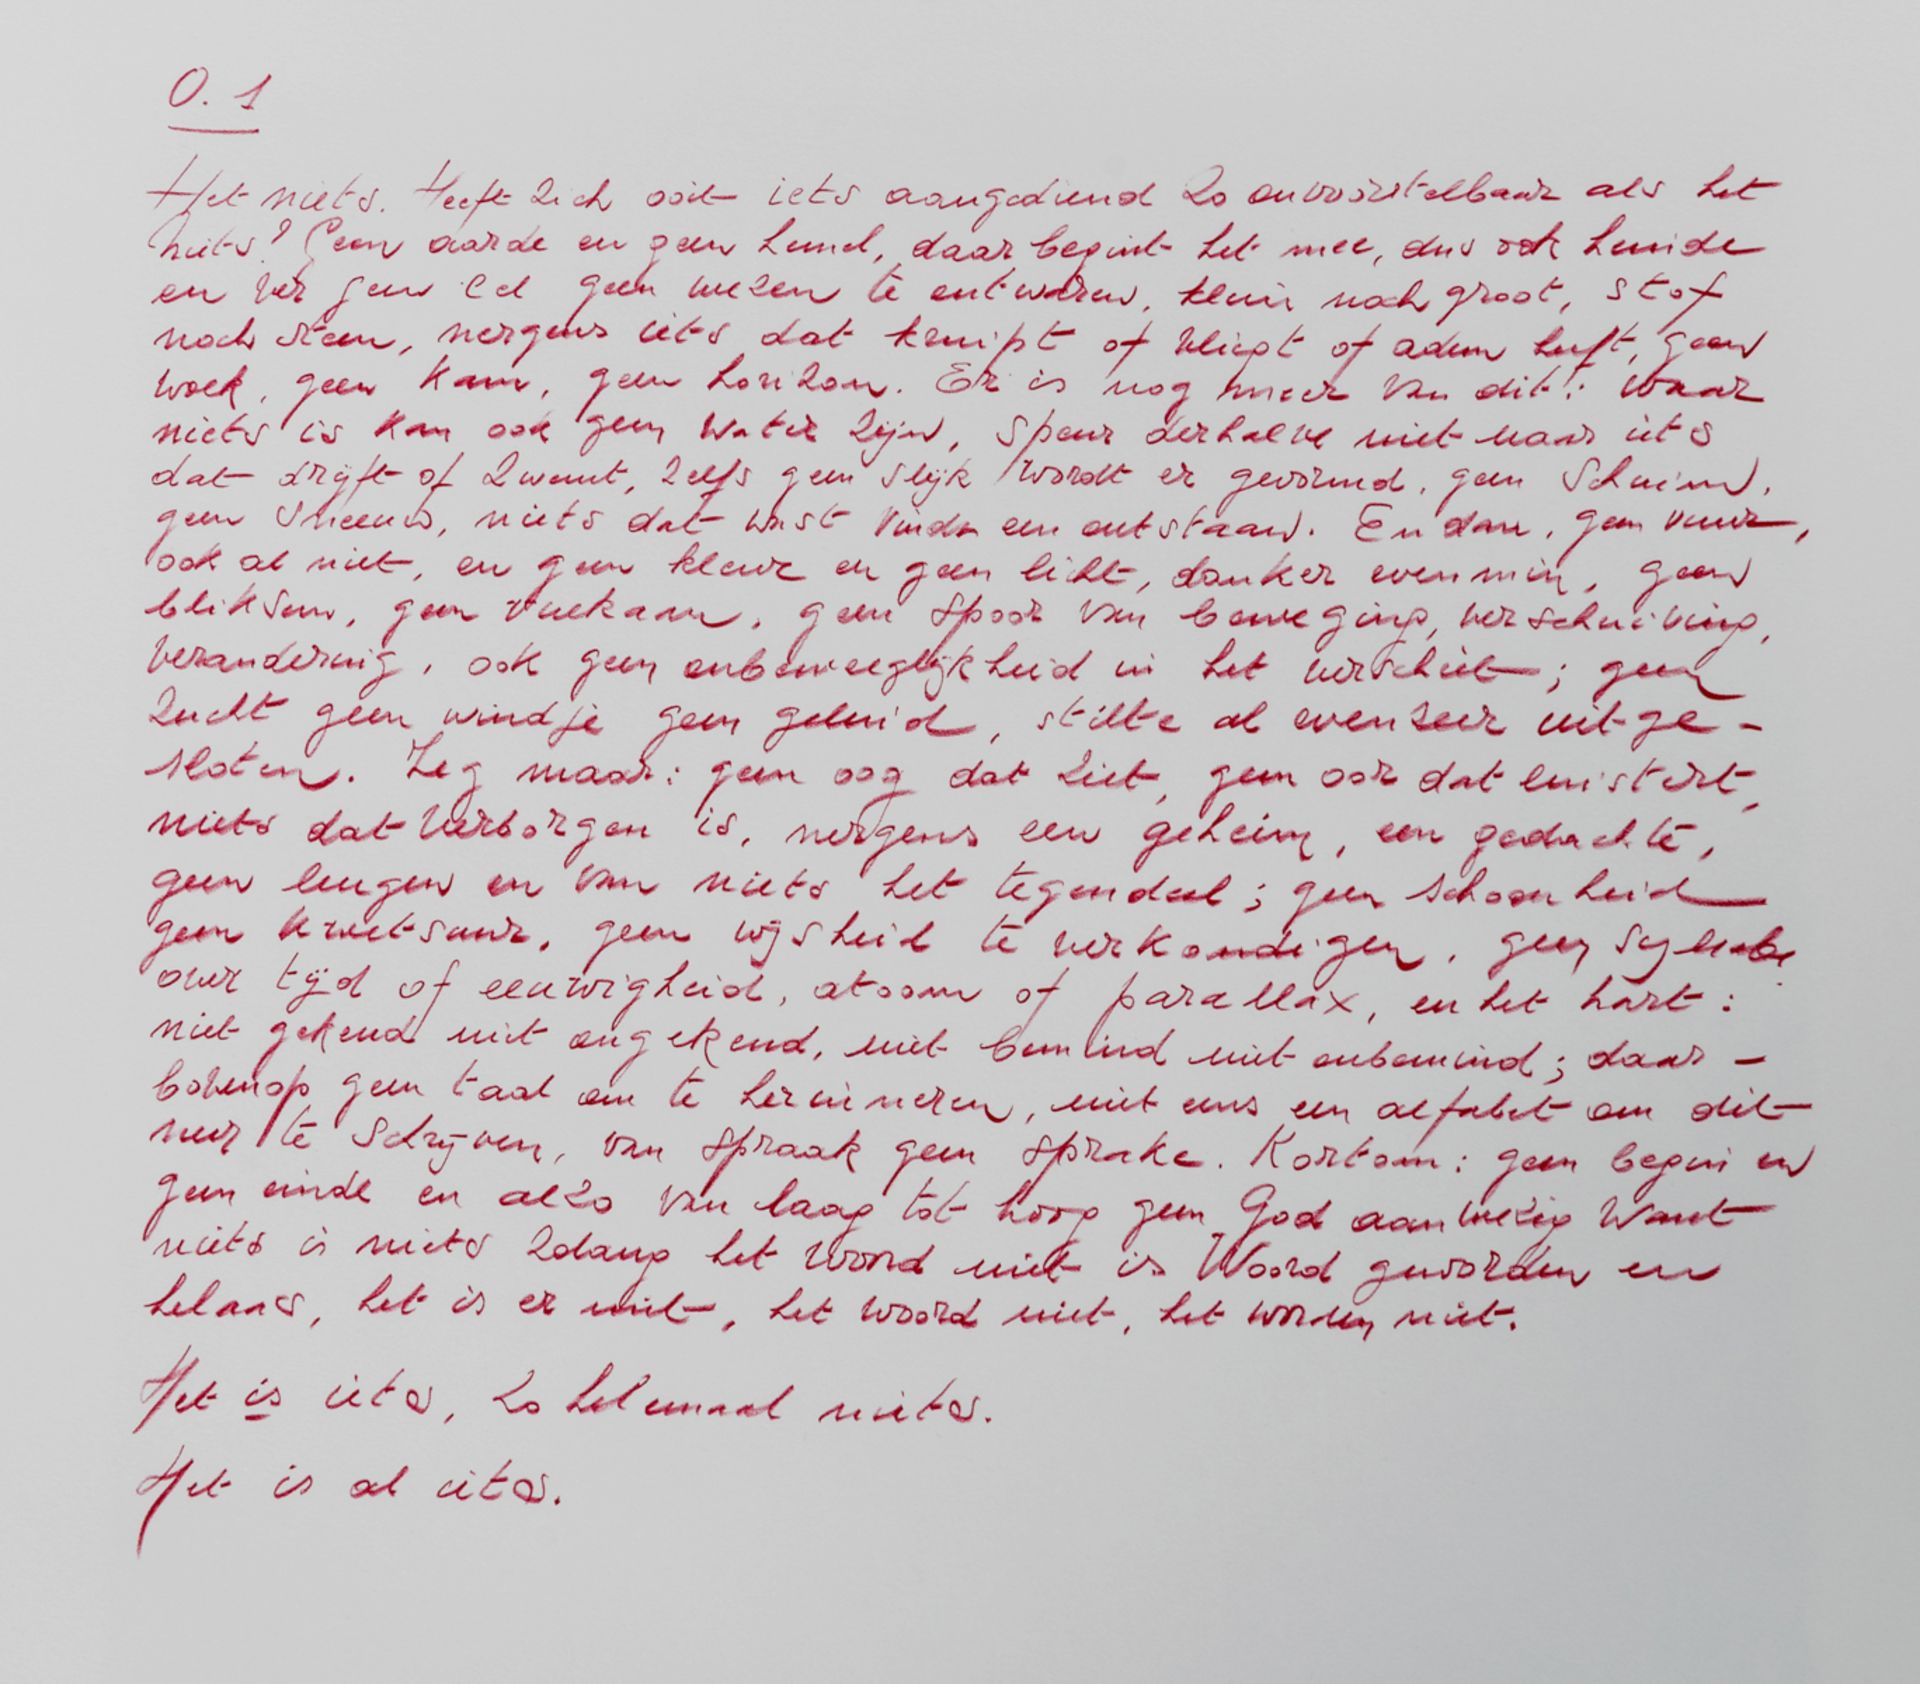 0.1
Het niets. Heeft zich ooit iets aangediend zo onvoorstelbaar als het
niets? Geen aarde en geen hemel, daar begint het mee, dus ook heinde
en ver geen cel geen wezen te ontwaren, klein noch groot, stof
noch steen, nergens iets dat kruipt of vliegt of adem heeft, geen
wolk, geen kam, geen horizon. Er is nog meer van dit: waar
niets is kan ook geen water zijn, speur derhalve niet naar iets
dat drijft of zwemt, zelfs geen slijk wordt er gevormd, geen schuim,
geen sneeuw, niets dat wist van een ontstaan. En dan, geen vuur,
ook al niet, en geen kleur en geen licht, donker evenmin, geen
bliksem, geen vulkaan, geen spoor van beweging, verschuiving,
verandering, ook geen onbeweeglijkheid in het verschiet; geen
zucht geen windje geen geluid, stilte al evenzeer uitge-
sloten. Zeg maar: geen oog dat ziet, geen oor dat luistert,
niets dat verborgen is, nergens een geheim, een gedachte,
geen leugen en van niets het tegendeel; geen schoonheid
geen kwetsuur, geen wijsheid te verkondigen, geen syllabe
over tijd of eeuwigheid, atoom of parallax, en het hart:
niet gekend niet ongekend, niet bemind niet onbemind; daar-
bovenop geen taal om te herinneren, niet eens een alfabet om dit
neer te schrijven, van spraak geen sprake. Kortom: geen begin en
geen einde en alzo van laag tot hoog geen God aanwezig want
niets is niets zolang het woord niet is Woord geworden en
helaas, het is er niet, het woord niet, het worden niet.
Het is iets, zo helemaal niets.
Het is al iets.